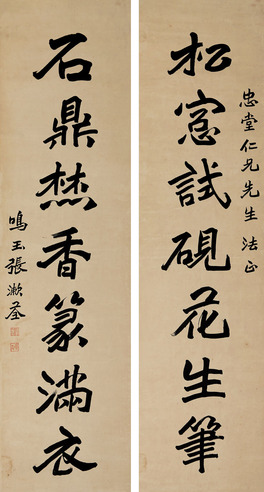 忠堂仁兄先生法正
松窓試硯花生筆
石鼎焚香篆滿衣
鳴玉張漱荃